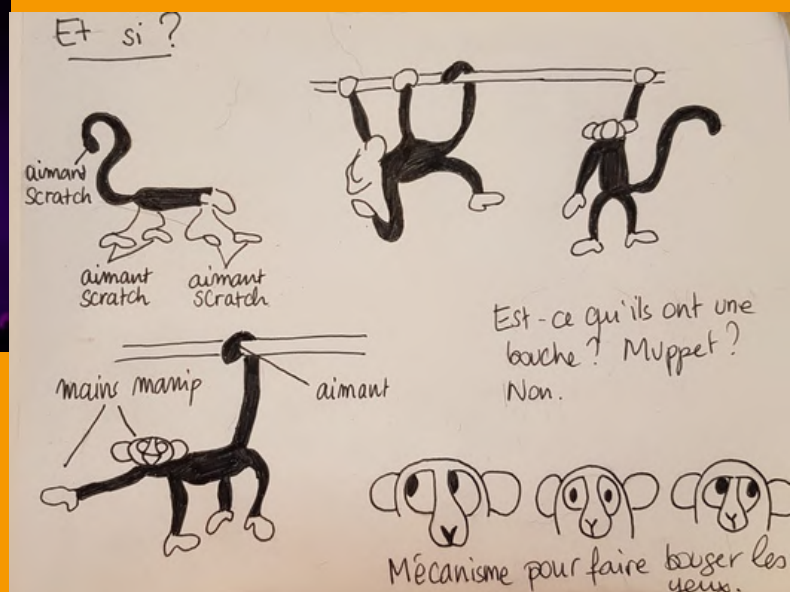 Et si ?
aimant
scratch
aimant
scratch
aimant
scratch
mains manip
aimant
Est-ce qu'ils ont une
bouche ? Muppet ?
Non.
Mécanisme pour faire bouger les
yeux.